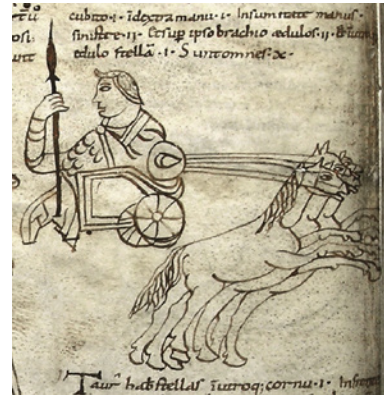 cubito·i·īdextra manu·i· Insumitate manus·
sinistre·ii· Etsup ipso brachio ædulos·ii·
ædulo stellā·i·Suntomnes·x·
Taur̄ hab& stellas īutroq; cornu·i· Infron